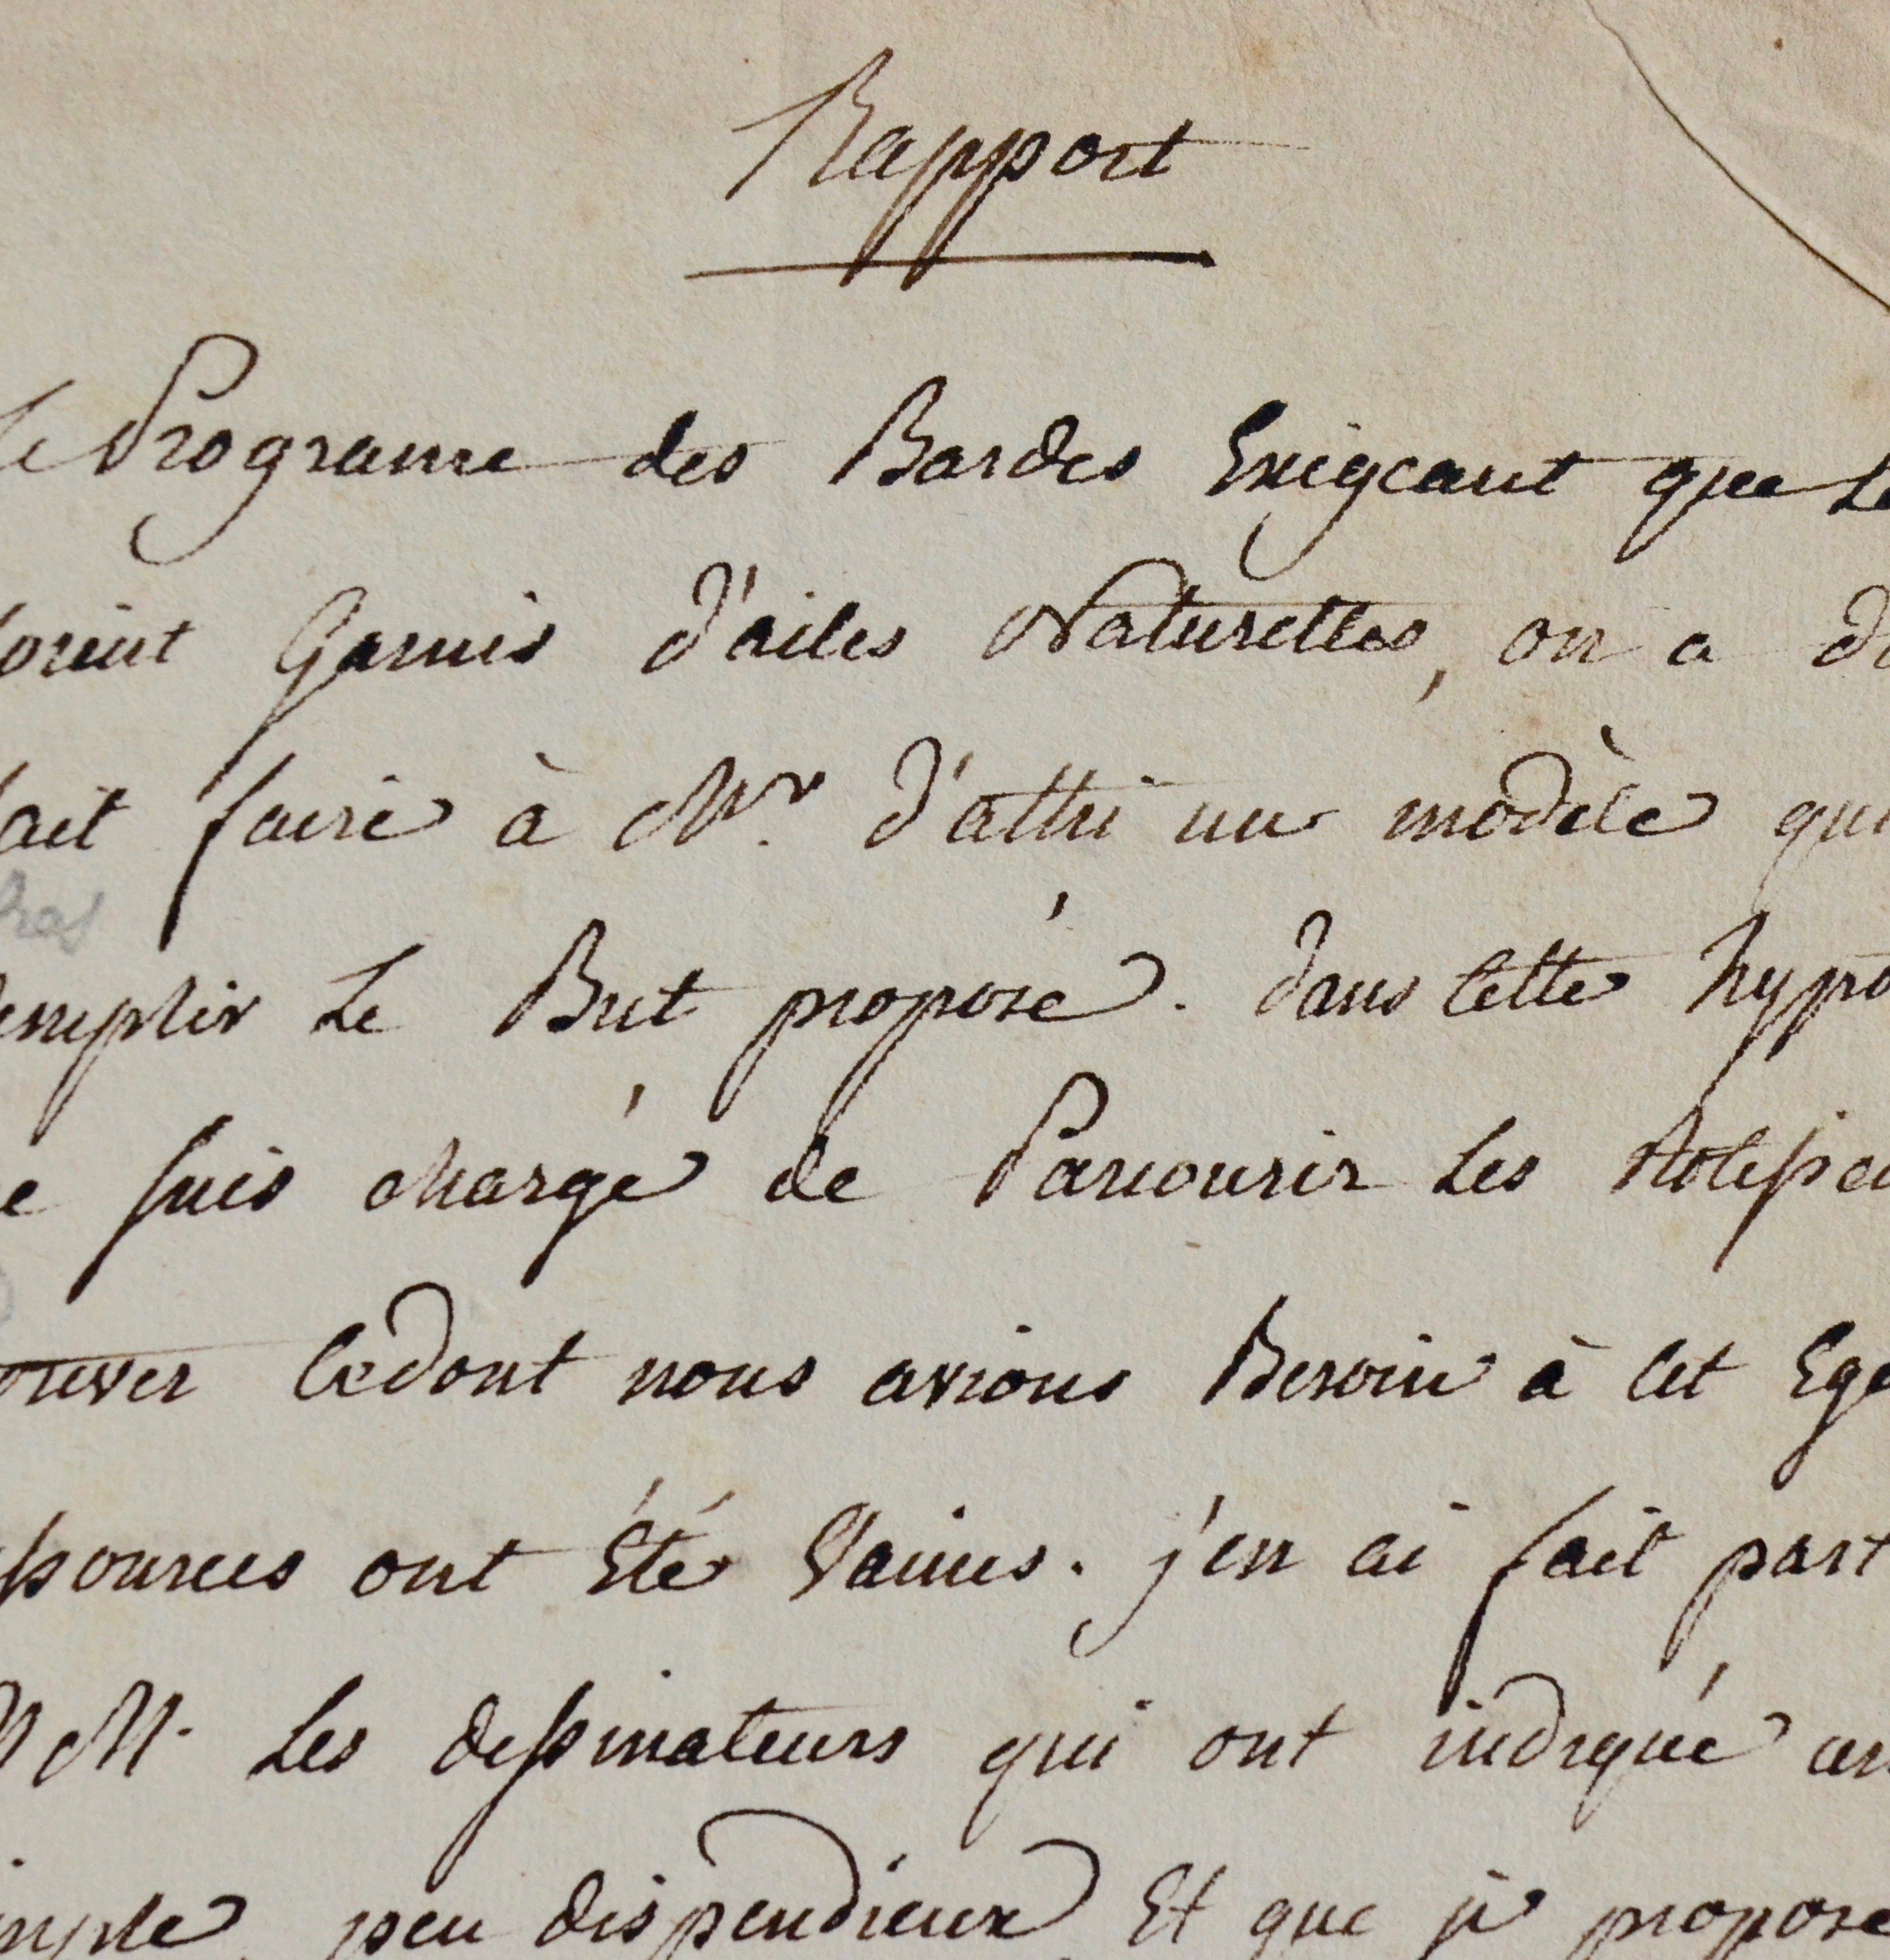 Rapport
Le Programe des Bardes Exigeant que Le
soient Garnis d'ailes Naturelles, on a
fait faire à Mr. d'attri un modèle qui
remplir Le But proposé. dans Cette hypo
e suis chargé de Parcourir Les
ouver Ce dont nous avions Besoin à Cet Ega
ssources ont Été Vaines. j'en ai fait part
MM. Les dessinateurs qui ont indiqué
imple, peu dispendieux, Et que je propose